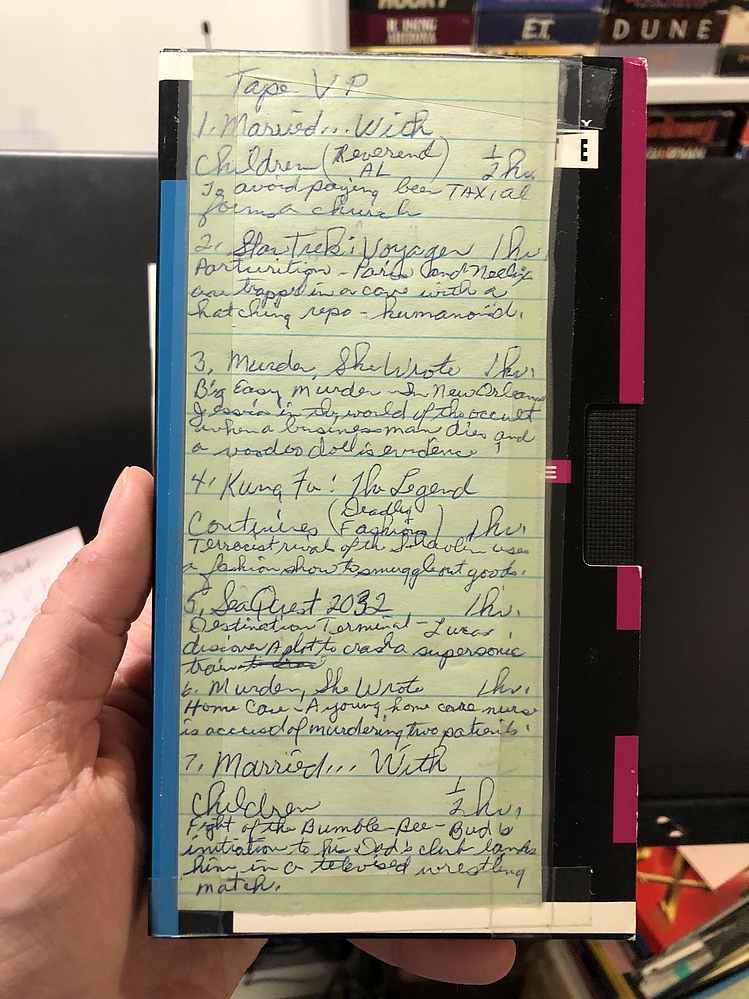 E.T.
DUNE
E
Tape VP
1. Married... With
Children (Reverend AL) 1/2 hr.
To avoid paying beer TAX, al
forms a church
2. Star Trek: Voyager 1 hr.
Parturition - Paris and Neelix
are trapp in a cave with a
hatching repo - humanoid.
3. Murder, She Wrote 1 hr.
Big Easy Murder - In New Orleans
Jessica in the world of the occult
when a business man dies and
a voodoo doll is evidence!
4. Kung Fu: The Legend
Continues (Deadly Fashion) 1 hr.
Terrorist rival of the Shaolin uses
a fashion show to smuggle out goods.
5. SeaQuest 2032 1 hr.
Destination Terminal - Lucas
discover A plot to crash a supersonic
train
6. Murder, She Wrote 1 hr.
Home Care - A young home care nurse
is accused of murdering two patients.
7. Married... With
Children 1/2 hr.
Fight of the Bumble-Bee - Bud's
initiation to his Dad's club lands
him in a televised wrestling
match.